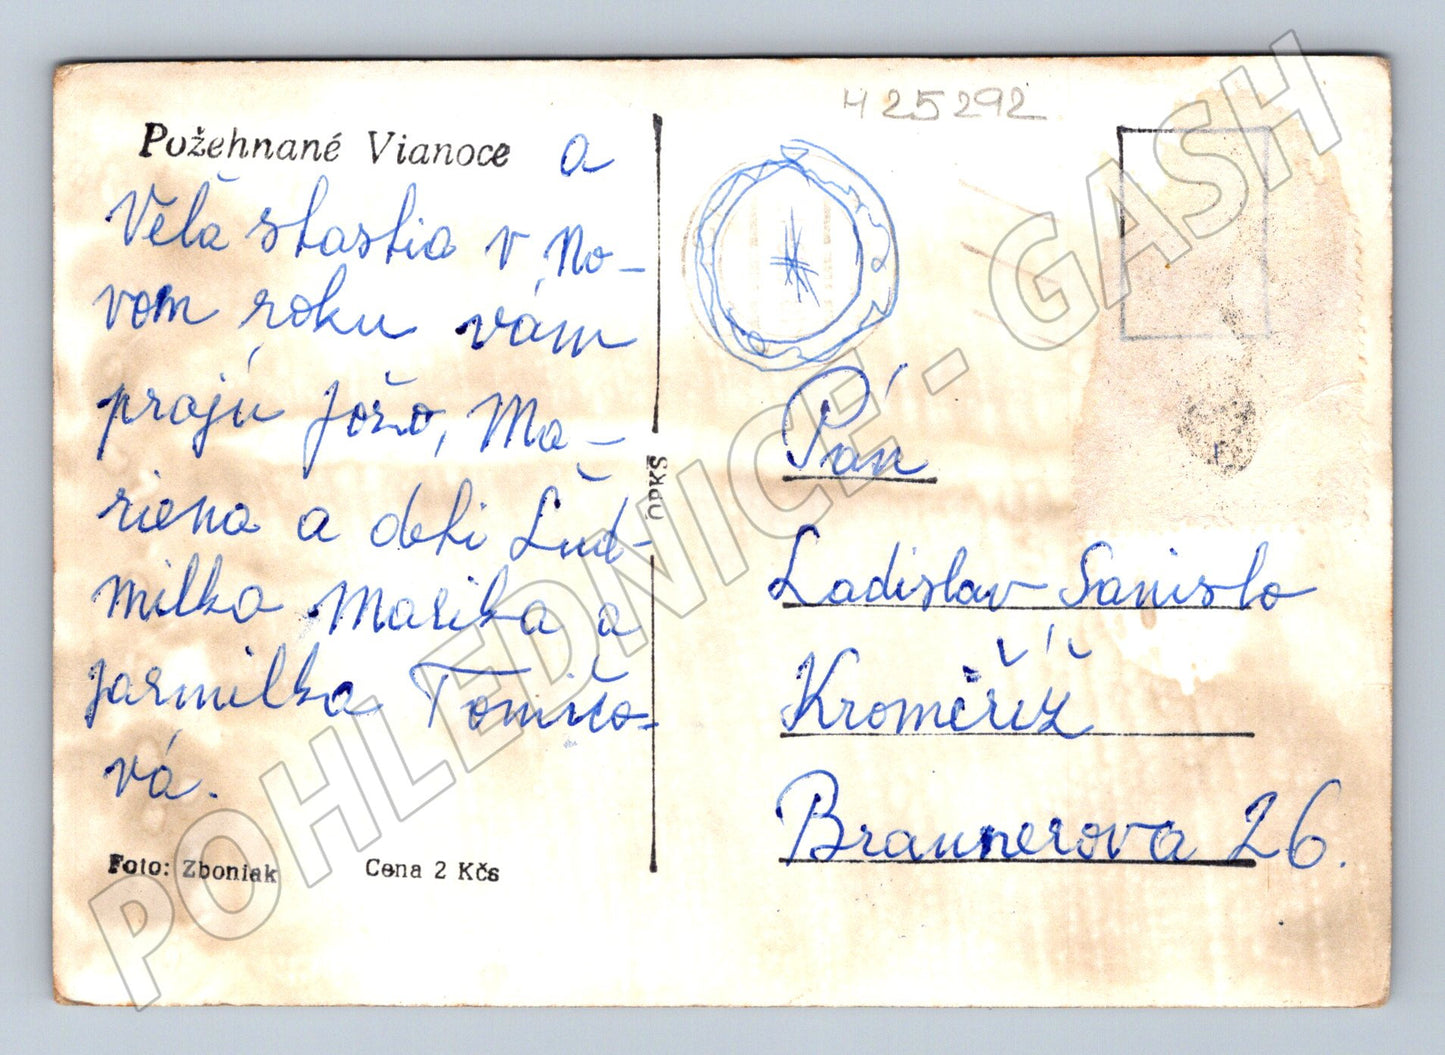 425292
Požehnané Vianoce a
Veľa štastia v No-
vom roku vám
prajú Jožo, Ma-
riena a deti Ľud-
milka Marika a
Jarmilka Tomičo-
vá.
Foto: Zboniak Cena 2 Kčs
ÚPKŠ
Pán
Ladislav Sanislo
Kroměříž
Braunerova 26.
POHLEDNICE - GASH